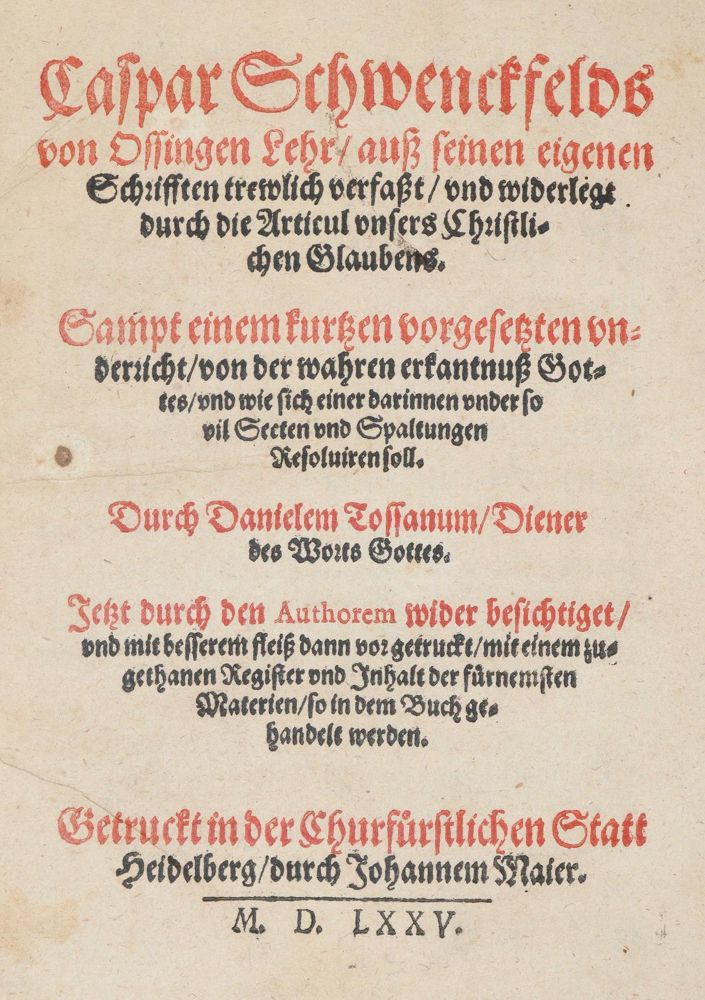 Caspar Schwenckfelds
von Ossingen Lehr/ auß seinen eigenen
Schrifften trewlich verfaßt/ vnd widerlegt
durch die Articul vnsers Christli-
chen Glaubens.
Sampt einem kurtzen vorgesetzten vn-
derricht/von der wahren erkantnuß Got-
tes/vnd wie sich einer darinnen vnder so
vil Secten vnd Spaltungen
Resoluiren soll.
Durch Danielem Tossanum/Diener
des Worts Gottes.
Jetzt durch den Authorem wider besichtiget/
vnd mit besserem fleiß dann vor getruckt/mit einem zu-
gethanen Register vnd Inhalt der fürnemsten
Materien/so in dem Buch ge-
handelt werden.
Getruckt in der Churfürstlichen Statt
Heidelberg/durch Johannem Maier.
M. D. LXXV.